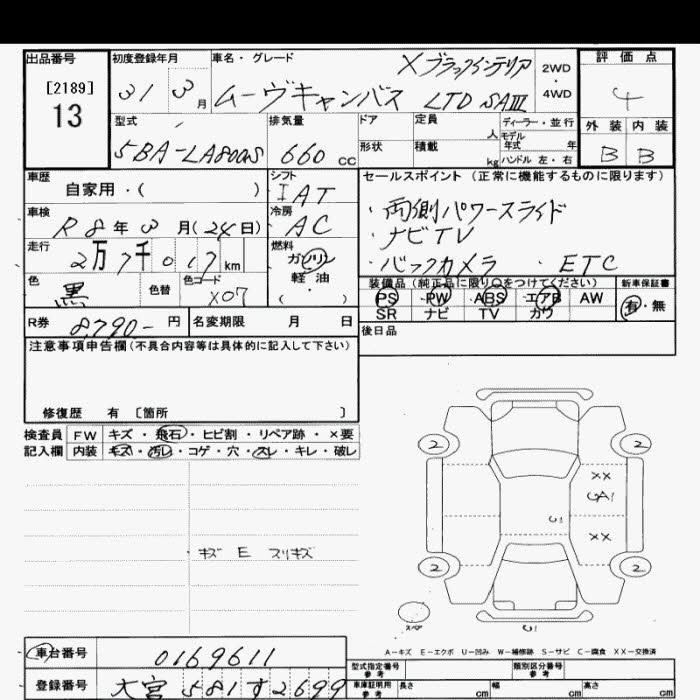 出品番号
[2189]
13
初度登録年月
31 3 月
車名・グレード
Xブラックインテリア
ムーヴキャンバス LTD SAⅢ
2WD
4WD
評価点
4
外装 内装
B B
型式
5BA-LA800S
排気量
660 cc
ドア
形状
定員
人
積載
kg
ディーラー・並行
モデル
年式 年
ハンドル 左・右
車歴
自家用・( )
シフト
I AT
車検
R8年3月(24日)
冷房
AC
走行
2万7千017km
燃料
ガソリン
軽油
( )
色
黒
色替
色コード
X07
セールスポイント(正常に機能するものに限ります)
・両側パワースライド
・ナビTV
・バックカメラ ・ETC
装備品(純正品に限り○をつけてください)
PS・PW・ABS・エアB AW
SR ナビ TV カワ
新車保証書
有・無
R券
8790- 円
名変期限 月 日
後日品
注意事項申告欄(不具合内容等は具体的に記入して下さい)
修復歴 有 〔箇所 〕
検査員 FW キズ・飛石・ヒビ割・リペア跡・×要
記入欄 内装 キズ・汚レ・コゲ・穴・スレ・キレ・破レ
キズ E スリキズ
2 2
XX
UA1
U1
XX
2 2
スペア
U1
A−キズ E−エクボ U−凹み W−補修跡 S−サビ C−腐食 XX−交換済
車台番号
0169611
登録番号
大宮 581 す 2699
型式指定番号
参考
類別区分番号
参考
車庫証明用
参考
長さ cm 幅 cm 高さ cm